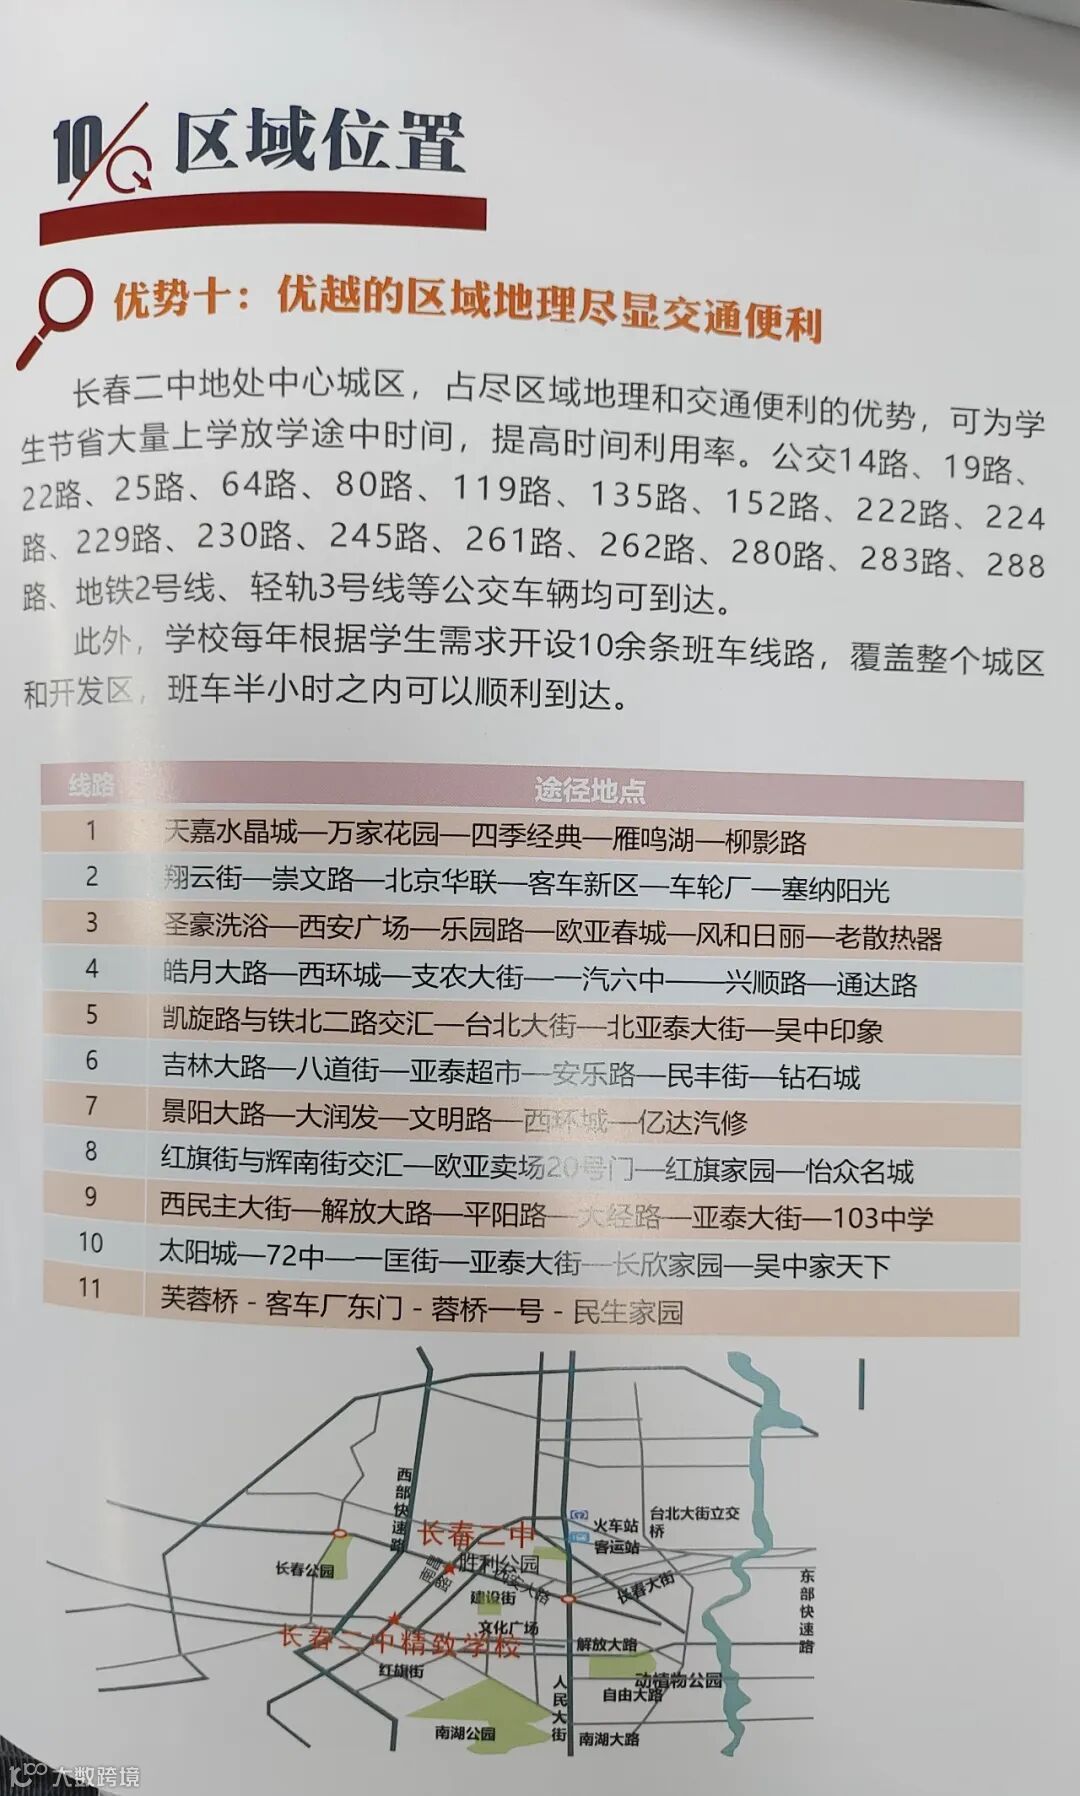 10 区域位置
优势十：优越的区域地理尽显交通便利
长春二中地处中心城区，占尽区域地理和交通便利的优势，可为学
生节省大量上学放学途中时间，提高时间利用率。公交14路、19路、
22路、25路、64路、80路、119路、135路、152路、222路、224
路、229路、230路、245路、261路、262路、280路、283路、288
路、地铁2号线、轻轨3号线等公交车辆均可到达。
此外，学校每年根据学生需求开设10余条班车线路，覆盖整个城区
和开发区，班车半小时之内可以顺利到达。
线路 途径地点
1 天嘉水晶城—万家花园—四季经典—雁鸣湖—柳影路
2 翔云街—崇文路—北京华联—客车新区—车轮厂—塞纳阳光
3 圣豪洗浴—西安广场—乐园路—欧亚春城—风和日丽—老散热器
4 皓月大路—西环城—支农大街—一汽六中——兴顺路—通达路
5 凯旋路与铁北二路交汇—台北大街—北亚泰大街—吴中印象
6 吉林大路—八道街—亚泰超市—安乐路—民丰街—钻石城
7 景阳大路—大润发—文明路—西环城—亿达汽修
8 红旗街与辉南街交汇—欧亚卖场20号门—红旗家园—怡众名城
9 西民主大街—解放大路—平阳路—大经路—亚泰大街—103中学
10 太阳城—72中—一匡街—亚泰大街—长欣家园—吴中家天下
11 芙蓉桥 - 客车厂东门 - 蓉桥一号 - 民生家园
西部快速路
长春二中
火车站
客运站
台北大街立交桥
长春公园
南昌路
胜利公园
西安大路
建设街
长春大街
东部快速路
文化广场
长春二中精致学校
解放大路
红旗街
动植物公园
自由大路
人民大街
南湖公园
南湖大路
大数跨境